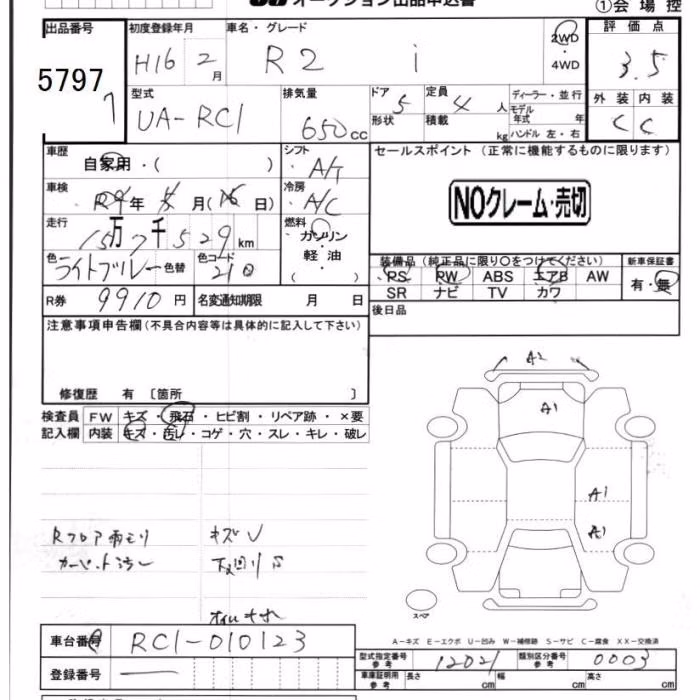 オークション出品申込書
①会場控
出品番号 初度登録年月 車名・グレード 評価点
5797 H16 2月 R2 i 2WD・4WD 3.5
型式 排気量 ドア 定員 ディーラー・並行 外装 内装
UA-RC1 650cc 5 4人 モデル年式 年 C C
形状 積載 kg ハンドル 左・右
車歴 シフト セールスポイント (正常に機能するものに限ります)
自家用・( ) A/T
車検 冷房 NOクレーム・売切
R9年 月( 日) A/C
走行 燃料
15万7千529km ガソリン・軽油・( )
色 ライトブルー 色替 色コード 210
装備品 (純正品に限り○をつけてください) 新車保証書
PS PW ABS エアB AW 有・無
SR ナビ TV カワ
R券 9910円 名変通知期限 月 日
後日品
注意事項申告欄(不具合内容等は具体的に記入して下さい)
修復歴 有 〔箇所 〕
検査員 FW キズ・飛石・ヒビ割・リペア跡・×要
記入欄 内装 キズ・汚レ・コゲ・穴・スレ・キレ・破レ
A2
A1
A1
A1
Rフロア雨モリ キズV
スペア
A-キズ E-エクボ U-凹み W-補修跡 S-サビ C-腐食 XX-交換済
車台番号 RC1-010123
型式指定番号 参考 12021 類別区分番号 参考 0003
登録番号
車庫証明用 参考 長さ cm 幅 cm 高さ cm